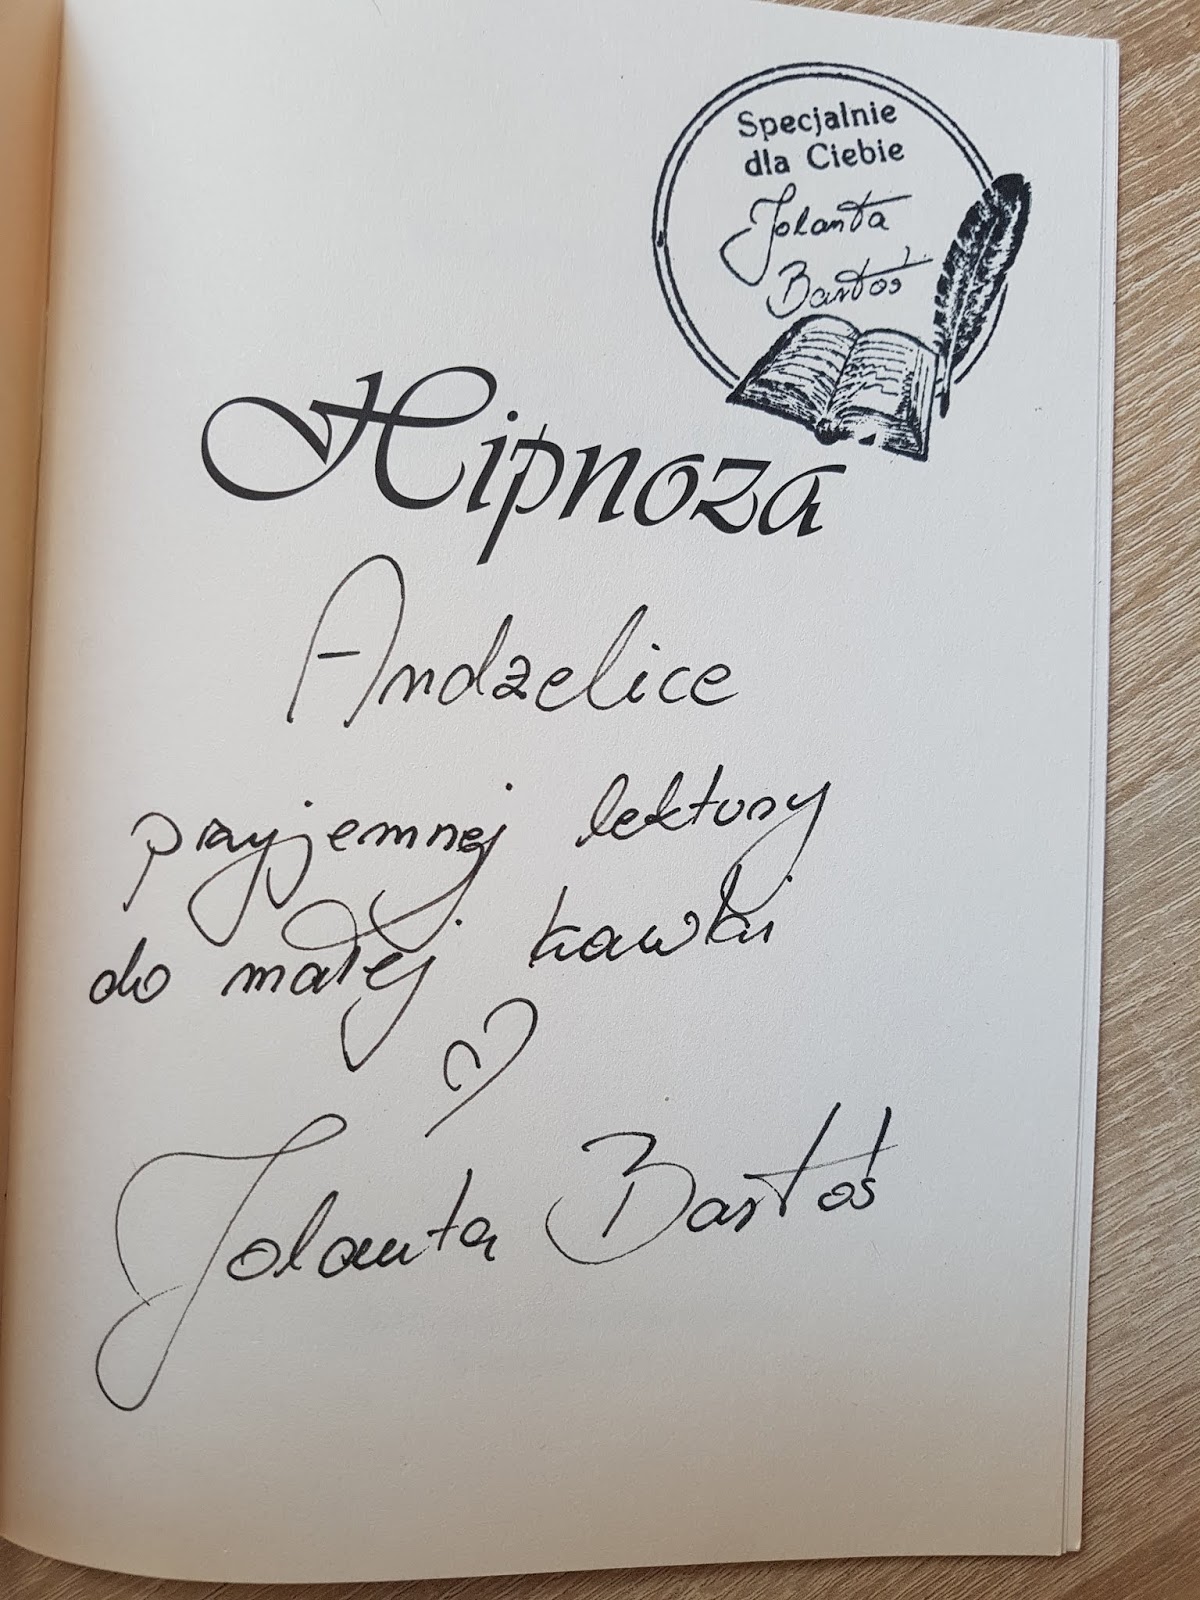 Specjalnie
dla Ciebie
Jolanta
Bartoś
Hipnoza
Andzelice
przyjemnej lektury
do małej kawki
Jolanta Bartoś